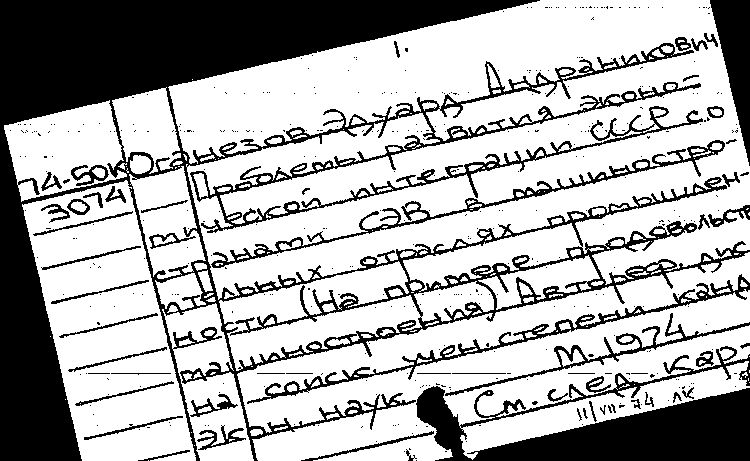 1.
74-50к Оганезов, Эдуард Андраникович
3074 Проблемы развития эконо=
тической интеграции СССР со
странами СЭВ в машинностро-
ительных отраслях промышлен-
ности (На примере продовольств
машиностроения) Автореф. дис
на соиск. учен. степени канд
экон. наук. М., 1974.
См. след. кар
11/VII-74 лк